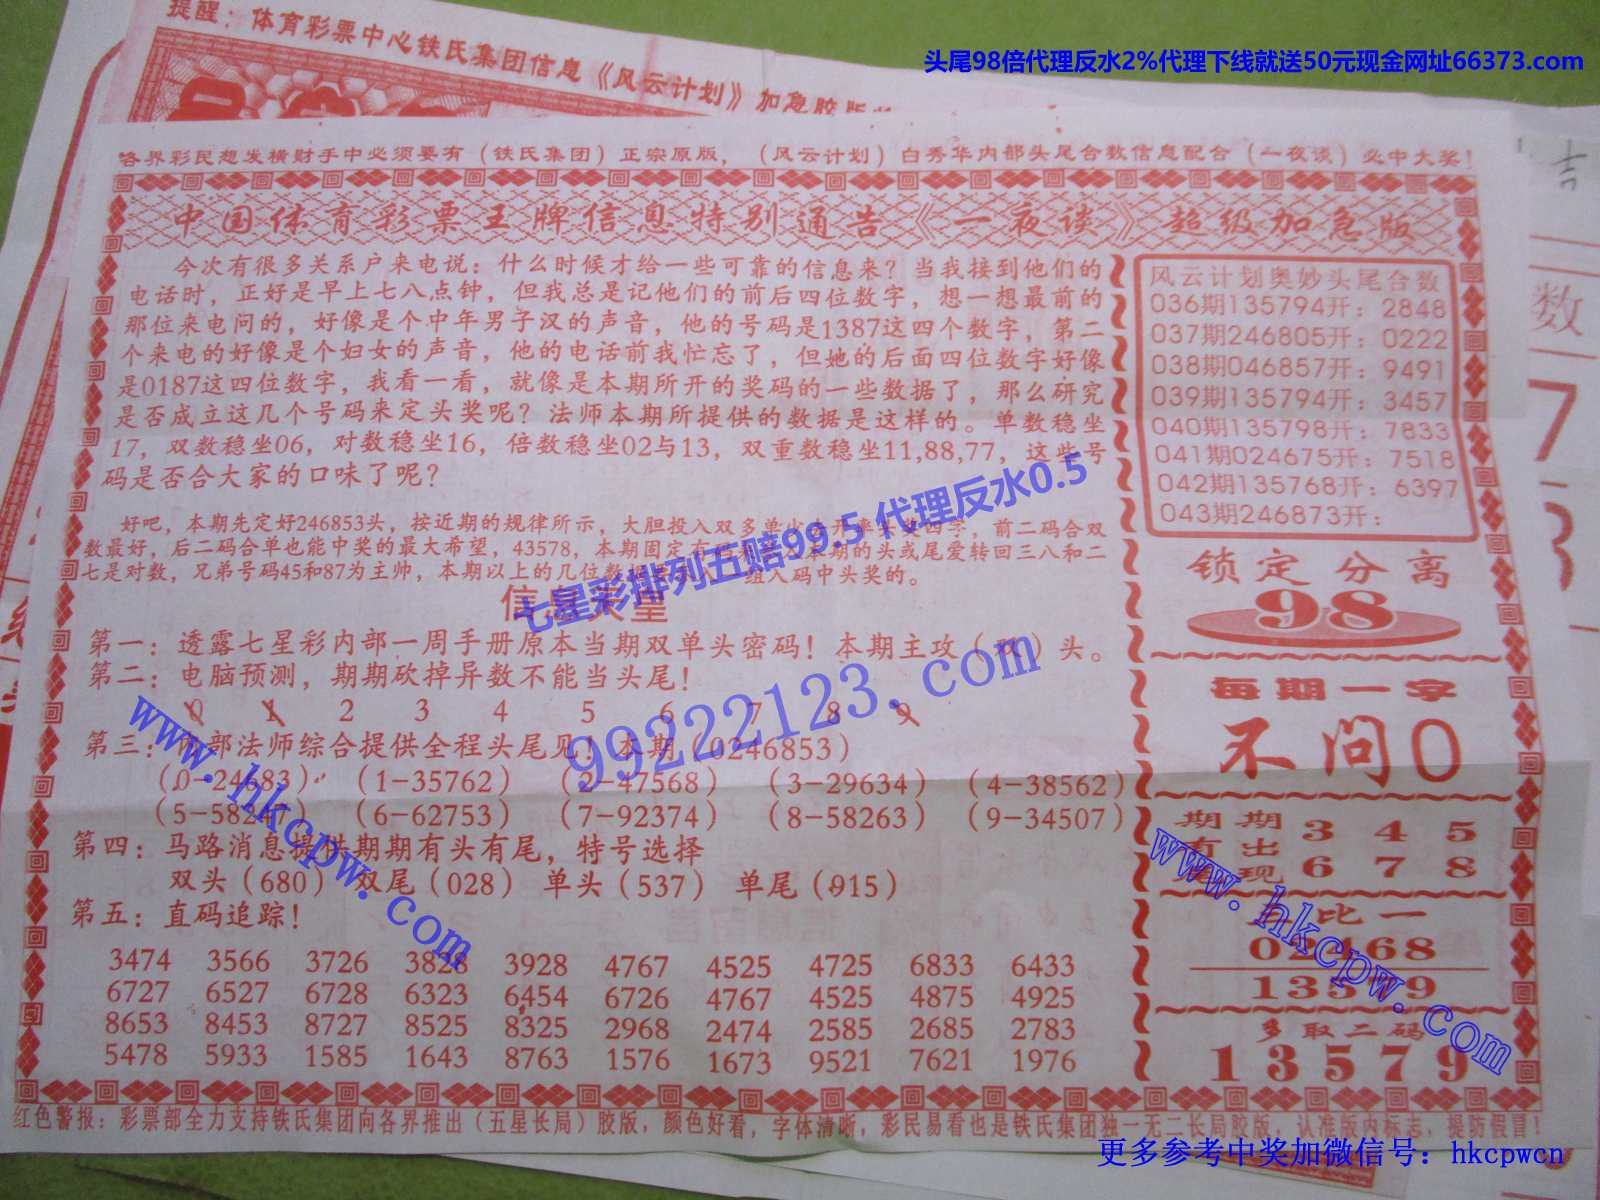 提醒：体育彩票中心铁氏集团信息《风云计划》加急胶版
头尾98倍代理反水2%代理下线就送50元现金网址66373.com
各界彩民想发横财手中必须要有（铁氏集团）正宗原版，（风云计划）白秀华内部头尾合数信息配合（一夜谈）必中大奖！
中国体育彩票王牌信息特别通告《一夜谈》超级加急版
今次有很多关系户来电说：什么时候才给一些可靠的信息来？当我接到他们的
电话时，正好是早上七八点钟，但我总是记他们的前后四位数字，想一想最前的
那位来电问的，好像是个中年男子汉的声音，他的号码是1387这四个数字，第二
个来电的好像是个妇女的声音，他的电话前我忙忘了，但她的后面四位数字好像
是0187这四位数字，我看一看，就像是本期所开的奖码的一些数据了，那么研究
是否成立这几个号码来定头奖呢？法师本期所提供的数据是这样的。单数稳坐
17，双数稳坐06，对数稳坐16，倍数稳坐02与13，双重数稳坐11,88,77，这些号
码是否合大家的口味了呢？
好吧，本期先定好246853头，按近期的规律所示，大胆投入双多单少去开率头奖四字，前二码合双
数最好，后二码合单也能中奖的最大希望，43578，本期固定有码 本期的头或尾爱转回三八和二
七是对数，兄弟号码45和87为主帅，本期以上的几位数 组入码中头奖的。
七星彩排列五赔99.5 代理反水0.5
信息
第一：透露七星彩内部一周手册原本当期双单头密码！本期主攻（双）头。
第二：电脑预测，期期砍掉异数不能当头尾！
0 1 2 3 4 5 6 7 8 9
第三：内部法师综合提供全程头尾见！本期（0246853）
（0-24683）（1-35762）（2-47568）（3-29634）（4-38562）
（5-58247）（6-62753）（7-92374）（8-58263）（9-34507）
第四：马路消息提供期期有头有尾，特号选择
双头（680）双尾（028）单头（537）单尾（915）
第五：直码追踪！
3474 3566 3726 3828 3928 4767 4525 4725 6833 6433
6727 6527 6728 6323 6454 6726 4767 4525 4875 4925
8653 8453 8727 8525 8325 2968 2474 2585 2685 2783
5478 5933 1585 1643 8763 1576 1673 9521 7621 1976
风云计划奥妙头尾合数
036期135794开：2848
037期246805开：0222
038期046857开：9491
039期135794开：3457
040期135798开：7833
041期024675开：7518
042期135768开：6397
043期246873开：
锁定分离
98
每期一字
不问0
期期 3 4 5
有出
现 6 7 8
比一
02468
13579
多取二码
13579
红色警报：彩票部全力支持铁氏集团向各界推出（五星长局）胶版，颜色好看，字体清晰，彩民易看也是铁氏集团独一无二长局胶版，认准版内标志，提防假冒！
99222123.com
www.hkcpw.com
www.hkcpw.com
更多参考中奖加微信号：hkcpwcn
吉
数
7
3